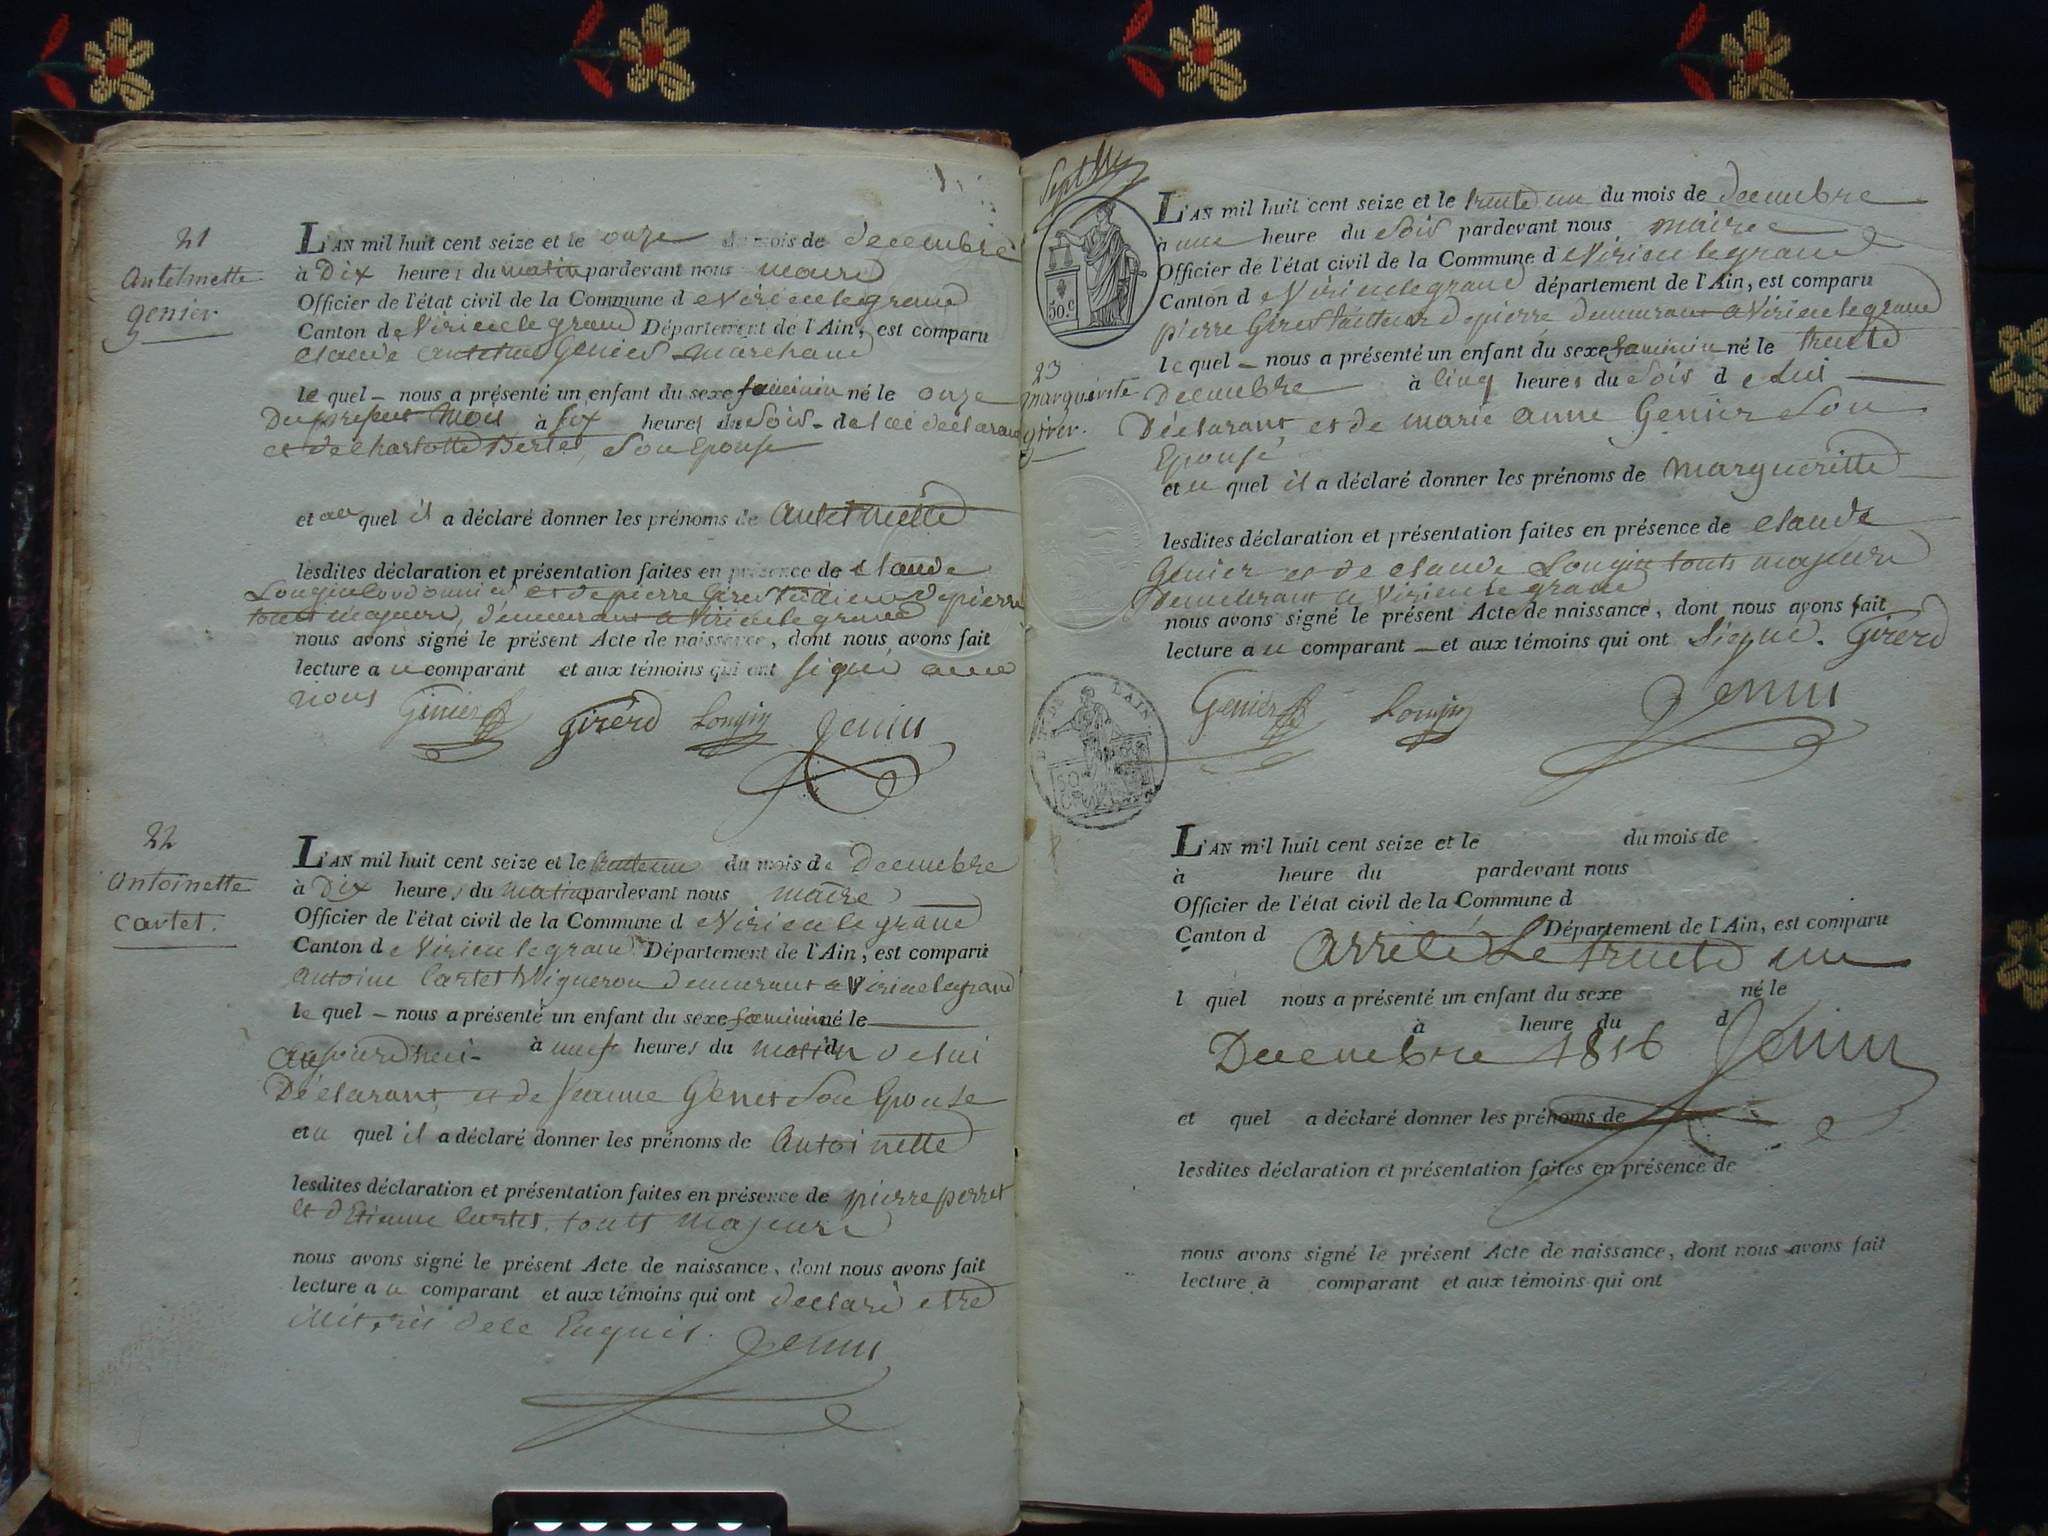 21
Antelmette
genier
L'AN mil huit cent seize et le onze du mois de decembre
à Dix heures du matin pardevant nous maire
Officier de l'état civil de la Commune de Virieu le grand
Canton de Virieu le grand Département de l'Ain, est comparu
claude antelme Genier marchand
le quel nous a présenté un enfant du sexe faminin né le onze
Du present Mois à six heures du Soir de lui declarant
et de Charlotte Bertet, Son Epouse
et au quel il a déclaré donner les prénoms de antelmette
lesdites déclaration et présentation faites en présence de claude
Longin Cordonnier et de pierre Girer de pierre
touts majeurs, demeurant a Virieu le grand
nous avons signé le présent Acte de naissance, dont nous avons fait
lecture au comparant et aux témoins qui ont signé avec
nous Genier Girerd Longin Jenin
22
Antoinette
Cartet.
L'AN mil huit cent seize et le trente un du mois de Decembre
à Dix heures du matin pardevant nous maire
Officier de l'état civil de la Commune de Virieu le grand
Canton de Virieu le grand Département de l'Ain, est comparu
antoine Cartet Vigneron demeurant a Virieu le grand
le quel nous a présenté un enfant du sexe faminin né le
aujourdhui à heures du matin de lui
Déclarant, et de Jeanne Genet Son Epouse
et au quel il a déclaré donner les prénoms de Antoinette
lesdites déclaration et présentation faites en présence de pierre perret
et d'Etienne Cartet, touts majeurs
nous avons signé le présent Acte de naissance, dont nous avons fait
lecture au comparant et aux témoins qui ont declaré etre
de ce Enquis. Jenin
50.c
L'AN mil huit cent seize et le trente un du mois de decembre
à une heure du Soir pardevant nous maire
Officier de l'état civil de la Commune de Virieu le grand
Canton de Virieu le grand département de l'Ain, est comparu
pierre Girer de pierre demeurant a Virieu le grand
le quel nous a présenté un enfant du sexe faminin né le trente
23
marguerite
girer.
Decembre à cinq heures du Soir de lui
Déclarant, et de marie anne Genier Son
Epouse
et au quel il a déclaré donner les prénoms de marguerítte
lesdites déclaration et présentation faites en présence de claude
Genier et de claude Longin touts majeurs
demeurant a Virieu le grand
nous avons signé le présent Acte de naissance, dont nous avons fait
lecture au comparant et aux témoins qui ont signé. Girerd
Genier Longin Jenin
DE L'AIN
50
L'AN mil huit cent seize et le du mois de
à heure du pardevant nous
Officier de l'état civil de la Commune d
Canton d Département de l'Ain, est comparu
Arrêté Le trente un
l quel nous a présenté un enfant du sexe né le
à heure du d
Decembre 1816 Jenin
et quel a déclaré donner les prénoms de
lesdites déclaration et présentation faites en présence de
nous avons signé le présent Acte de naissance, dont nous avons fait
lecture à comparant et aux témoins qui ont